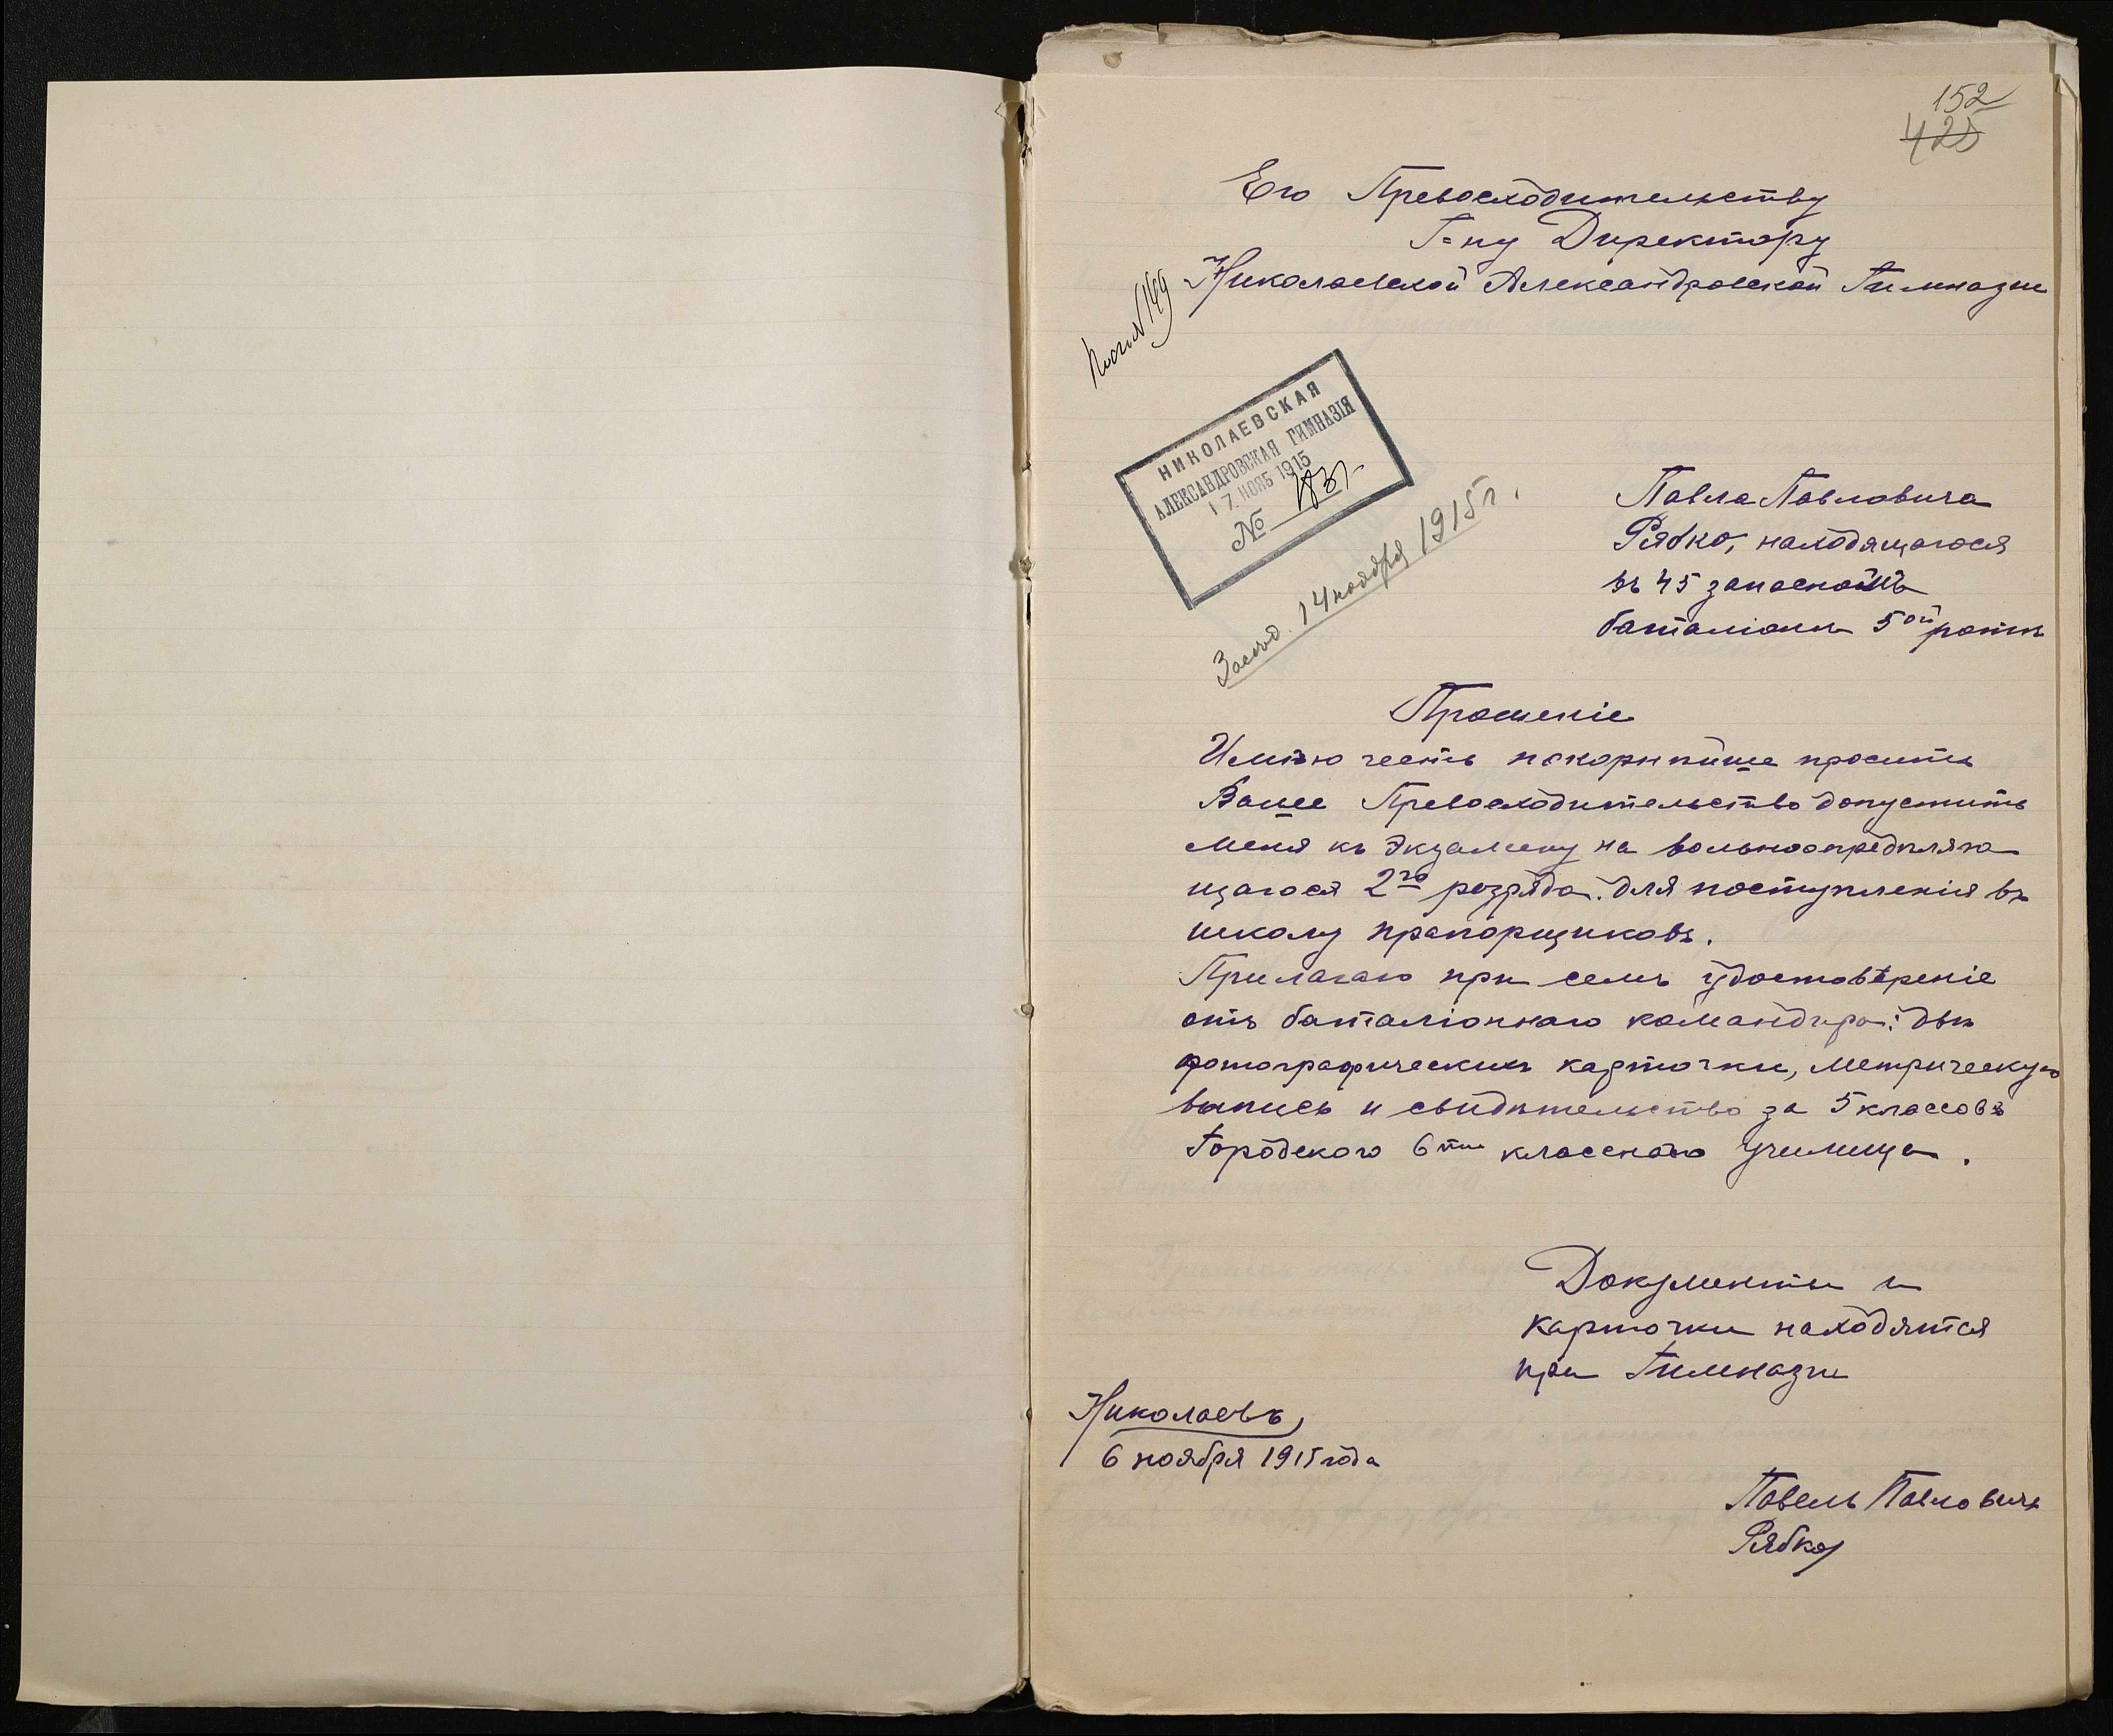 152
425
Его Превосходительству
Г=ну Директору
Николаевской Александровской Гимназии
НИКОЛАЕВСКАЯ
АЛЕКСАНДРОВСКАЯ ГИМНАЗІЯ
17 НОЯБ 1915
№
Засѣд. 14 ноября 1915 г.
Павла Павловича
Рябко, находящагося
въ 45 запасномъ
баталіонѣ 5ой роты
Прошеніе
Имѣю честь покорнѣйше просить
Ваше Превосходительство допустить
меня къ экзамену на вольноопредѣляю
щагося 2го розряда. для поступленія въ
школу прапорщиковъ.
Прилагаю при семъ удостовѣреніе
отъ баталіоннаго командира: двѣ
фотографическихъ карточки, метрическую
выпись и свидѣтельство за 5 классовъ
Городского 6ти класснаго Училища.
Документы и
карточки находятся
при Гимназии
Николаевъ,
6 ноября 1915 года
Павелъ Павловичъ
Рябко